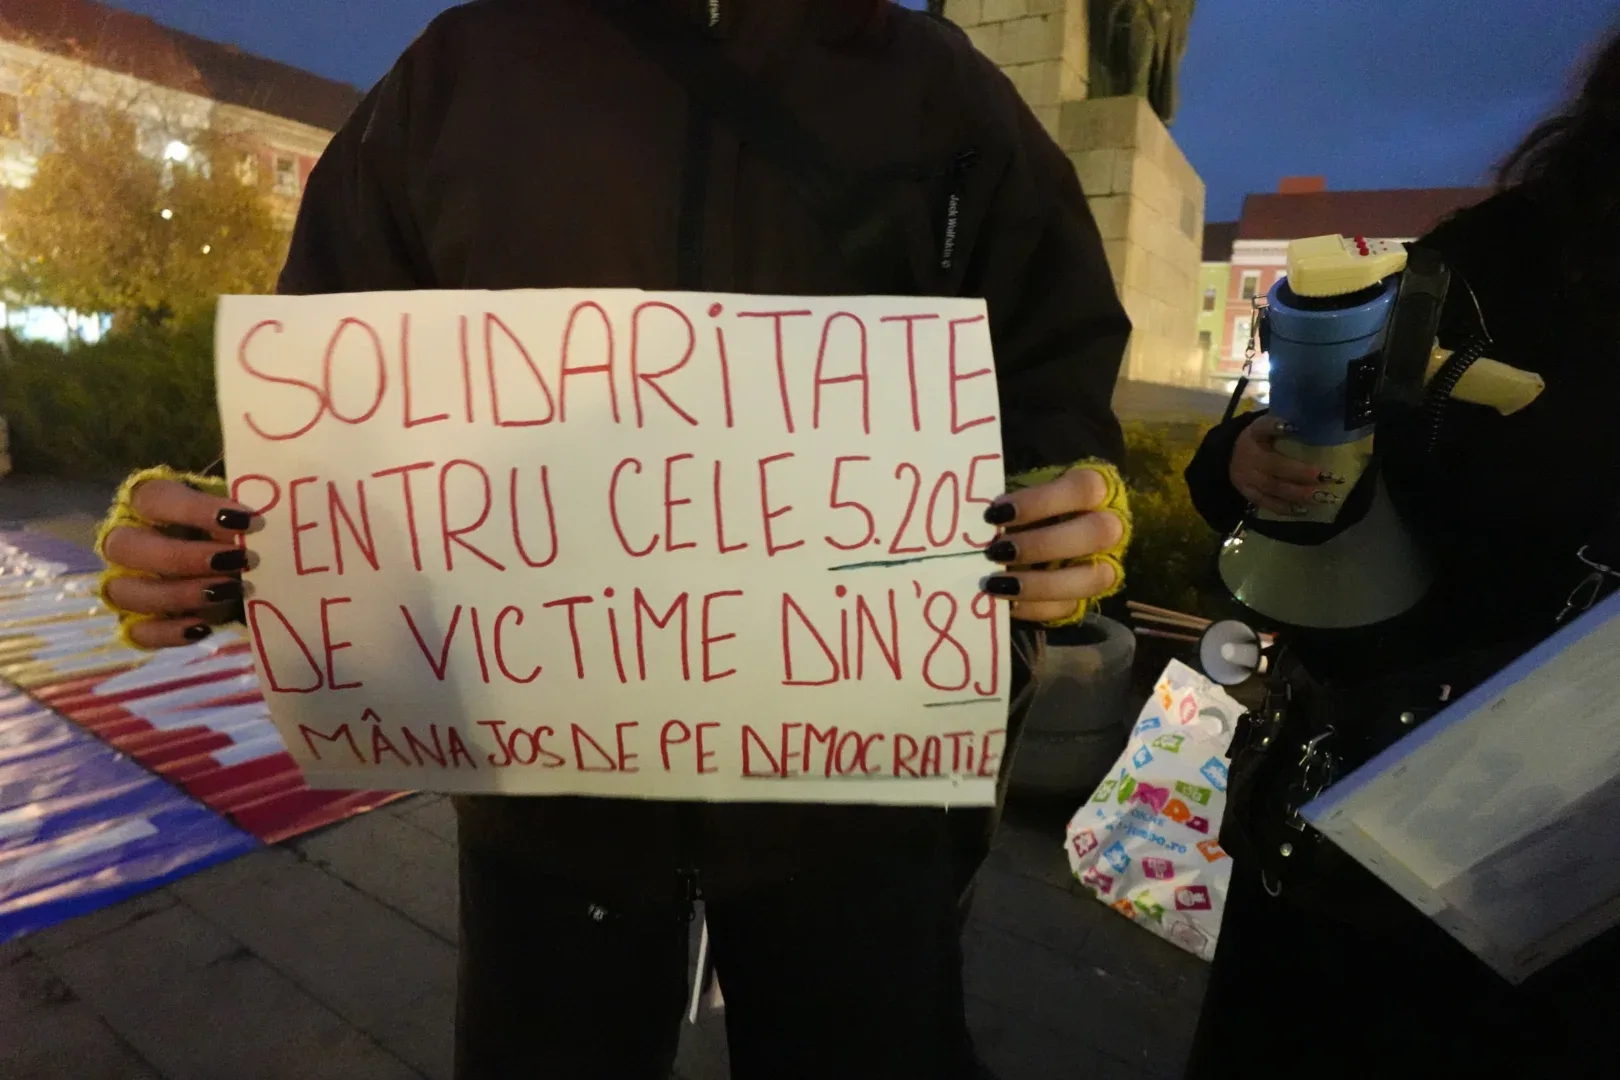 SOLIDARiTATE
PENTRU CELE 5.205
DE VICTiME DiN '89
MÂNA JOS DE PE DEMOCRAȚiE
Jack Wolfskin